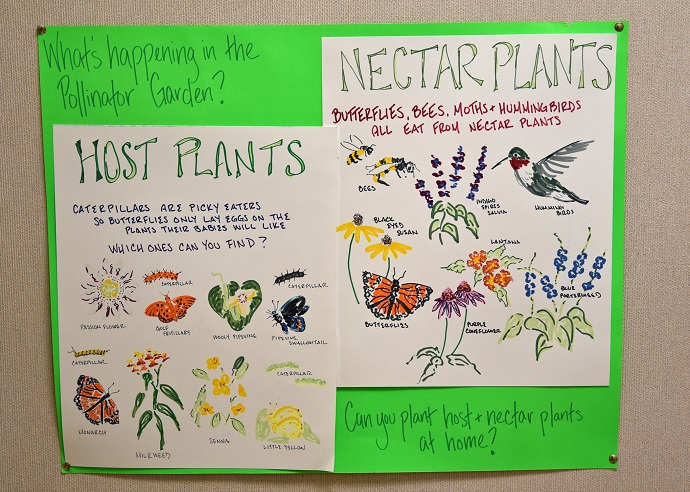 What's happening in the
Pollinator Garden?
HOST PLANTS
CATERPILLARS ARE PICKY EATERS
SO BUTTERFLIES ONLY LAY EGGS ON THE
PLANTS THEIR BABIES WILL LIKE
WHICH ONES CAN YOU FIND?
PASSION FLOWER
CATERPILLAR
GULF FRITILLARY
WOOLY PIPEVINE
CATERPILLAR
PIPEVINE
SWALLOWTAIL
CATERPILLAR
MONARCH
MILKWEED
SENNA
CATERPILLAR
LITTLE YELLOW
NECTAR PLANTS
BUTTERFLIES, BEES, MOTHS + HUMMINGBIRDS
ALL EAT FROM NECTAR PLANTS
BEES
INDIGO
SPIRES
SALVIA
HUMMING
BIRDS
BLACK
EYED
SUSAN
LANTANA
BUTTERFLIES
PURPLE
CONEFLOWER
BLUE
PORTERWEED
Can you plant host + nectar plants
at home?